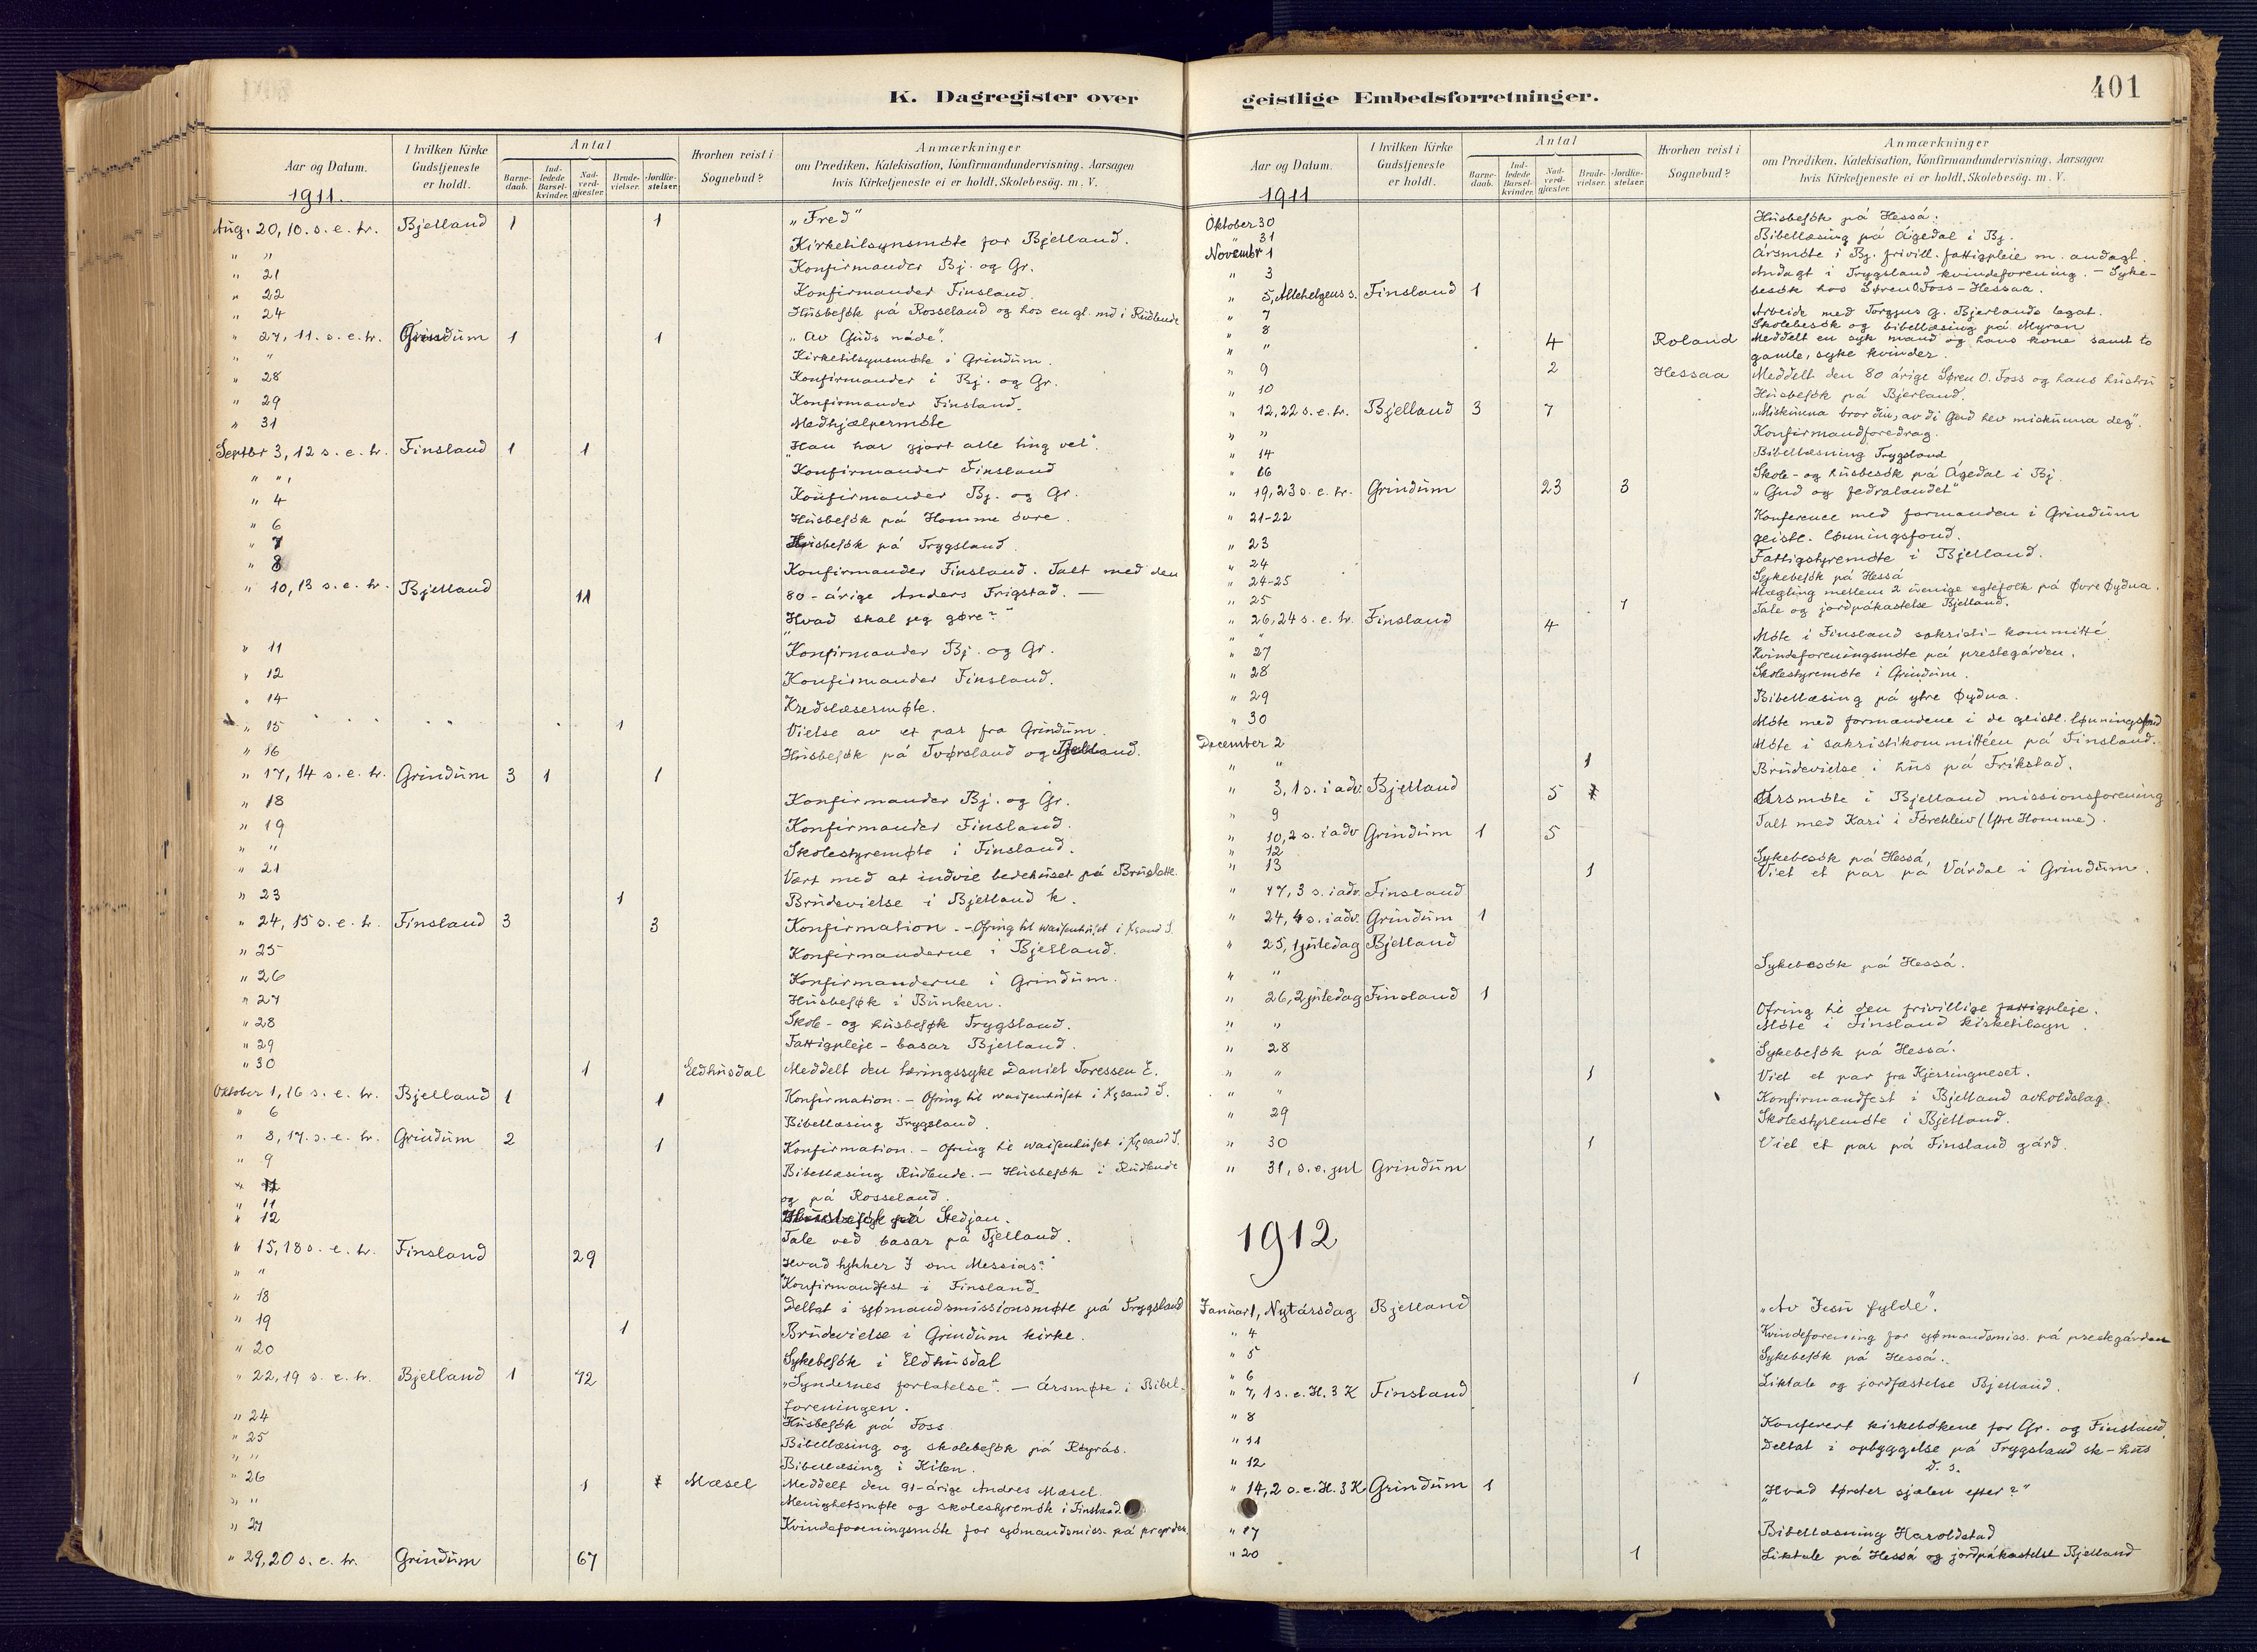 K. Dagregister over
Aar og Datum.
I hvilken Kirke Gudstjeneste er holdt.
Antal
Barnedaab.
Indledede Barselkvinder.
Nadverdgjæster.
Brudevielser.
Jordfæstelser.
Hvorhen reist i Sognebud?
Anmærkninger
om Prædiken, Katekisation, Konfirmandundervisning, Aarsagen
hvis Kirketjeneste ei er holdt, Skolebesøg. m. V.
1911.
Aug. 20, 10. s. e. tr. Bjelland 1 1 „Fred"
" " Kirketilsynsmøte for Bjelland.
" 21 Konfirmander Bj. og Gr.
" 22 Konfirmander Finsland.
" 24 Husbesøk på Rosseland og hos en gl. md i Rudbende
" 27, 11. s. e. tr. Grindum 1 1 „Av Guds nåde".
" " Kirketilsynsmøte i Grindum.
" 28 Konfirmander i Bj. og Gr.
" 29 Konfirmander Finsland.
" 31 Medhjælpermøte
Septbr 3, 12 s. e. tr. Finsland 1 1 „Han har gjort alle ting vel".
" " Konfirmander Finsland
" 4 Konfirmander Bj. og Gr.
" 6 Husbesøk på Homme øvre.
" 7 Husbesøk på Trygsland.
" 8 Konfirmander Finsland. Talt med den
80-årige Anders Frigstad. —
" 10, 13 s. e. tr. Bjelland 11 „Hvad skal jeg gøre?"
" 11 Konfirmander Bj. og Gr.
" 12 Konfirmander Finsland.
" 14 Kredslæsermøte.
" 15 1 Vielse av et par fra Grindum.
" 16 Husbesøk på Tvørsland og Tjelland.
" 17, 14 s. e. tr. Grindum 3 1 1
" 18 Konfirmander Bj. og Gr.
" 19 Konfirmander Finsland.
" " Skolestyremøte i Finsland.
" 21 Vært med at indvie bedehuset på Bruslette.
" 23 1 Brudevielse i Bjelland k.
" 24, 15 s. e. tr. Finsland 3 3 Konfirmation. - Ofring til waisenhuset i Krsand S.
" 25 Konfirmanderne i Bjelland.
" 26 Konfirmanderne i Grindum.
" 27 Husbesøk i Bunken.
" 28 Skole- og husbesøk Trygsland.
" 29 Fattigpleje-basar Bjelland.
" 30 1 Eldhusdal Meddelt den tæringssyke Daniel Toressen E.
Oktober 1, 16 s. e. tr. Bjelland 1 1 Konfirmation. - Ofring til waisenhuset i Krsand S.
" 6 Bibellæsing Trygsland.
" 8, 17. s. e. tr. Grindum 2 1 Konfirmation. - Ofring til waisenhuset i Krsand S.
" 9 Bibellæsing Rudbende. - Husbesøk i Rudbende
og på Rosseland.
" 11
" 12 Husbesøk på Stedjan.
Tale ved basar på Tjelland.
" 15, 18 s. e. tr. Finsland 29 Hvad tykker I om Messias?"
" " Konfirmandfest i Finsland.
" 18 Deltat i sjømandsmissionsmøte på Trygsland
" 19 1 Brudevielse i Grindum kirke.
" 20 Sykebesøk i Eldhusdal
" 22, 19 s. e. tr. Bjelland 1 72 „Syndernes forlatelse". - Årsmøte i Bibel-
foreningen.
" 24 Husbesøk på Foss
" 25 Bibellæsing og skolebesøk på Røyrås.
" " Bibellæsing i Kilen.
" 26 1 Mæsel Meddelt den 91-årige Andres Mæsel.
" " Menighetsmøte og skolestyremøk i Finsland.
" 27 Kvindeforeningsmøte for sjømandsmiss. på prgrden.
" 29, 20 s. e. tr. Grindum 67
geistlige Embedsforretninger.
401
Aar og Datum.
I hvilken Kirke Gudstjeneste er holdt.
Antal
Barnedaab.
Indledede Barselkvinder.
Nadverdgjæster.
Brudevielser.
Jordfæstelser.
Hvorhen reist i Sognebud?
Anmærkninger
om Prædiken, Katekisation, Konfirmandundervisning, Aarsagen
hvis Kirketjeneste ei er holdt, Skolebesøg. m. V.
1911
Oktober 30 Husbesøk på Hesså.
" 31 Bibellæsing på Ågedal i Bj.
Novembr 1 Årsmøte i Bj. frivill. fattigpleie m. andagt.
" 3 Andagt i Trygsland kvindeforening. - Syke-
besøk hos Søren O. Foss - Hessaa.
" 5, Allehelgens s. Finsland 1
" 7 Arbeide med Torgjus G. Bjerlands legat.
" 8 Skolebesøk og bibellæsing på Myran
" " 4 Roland Meddelt en syk mand og hans kone samt to
gamle, syke kvinder.
" 9 2 Hessaa Meddelt den 80 årige Søren O. Foss og hans hustru
" 10 Husbesøk på Bjerland.
" 12, 22 s. e. tr. Bjelland 3 7 „Miskunna bror din, av di Gud hev miskunna deg".
" " Konfirmandforedrag.
" 14 Bibellæsning Trygsland
" 16 Skole- og husbesøk på Ågedal i Bj.
" 19, 23 s. e. tr. Grindum 23 3 „Gud og fedralandet"
" 21-22 Konference med formanden i Grindum
geistl. lønningsfond.
" 23 Fattigstyremøte i Bjelland.
" 24 Sykebesøk på Hesså
" 24-25 Mægling mellem 2 uenige egtefolk på Øvre Øydna.
" 25 1 Tale og jordpåkastelse Bjelland.
" 26, 24 s. e. tr. Finsland 4
" " Møte i Finsland sakristi-kommitté
" 27 Kvindeforeningsmøte på prestegården.
" 28 Skolestyremøte i Grindum.
" 29 Bibellæsing på ytre Øydna.
" 30 Møte med formændene i de geistl. lønningsfond
December 2 Møte i sakristikommittéen på Finsland.
" " 1 Brudevielse i hus på Frikstad.
" 3, 1 s. i adv. Bjelland 5 Årsmøte i Bjelland missionsforening
" 9 Talt med Kari i Toreklew (Ytre Homme).
" 10, 2 s. i adv Grindum 1 5
" 12 Sykebesøk på Hesså,
" 13 1 Viet et par på Vårdal i Grindum.
" 17, 3 s. i adv. Finsland
" 24, 4 s. i adv. Grindum 1
" 25, 1 juledag Bjelland
" " Sykebesøk på Hesså.
" 26, 2 juledag Finsland 1 Ofring til den frivillige fattigpleje.
" " Møte i Finsland kirketilsyn.
" 28 Sykebesøk på Hesså.
" " 1 Viet et par fra Kjerringneset.
" " Konfirmandfest i Bjelland avholdslag.
" 29 Skolestyremøte i Bjelland.
" 30 1 Viet et par på Finsland gård.
" 31, s. e. jul Grindum
1912
Januar 1, Nytårsdag Bjelland „Av Jesu fylde".
" 4 Kvindeforening for sjømandsmiss. på prestegården
" 5 Sykebesøk på Hesså.
" 6 1 Liktale og jordfæstelse Bjelland.
" 7, 1 s. e. H. 3 K Finsland
" 8 Konferert kirkebøkene for Gr. og Finsland.
" 11 Deltat i opbyggelse på Trygsland sk-hus
" 12 d. s.
" 14, 2 s. e. H. 3 K Grindum 1 „Hvad tørster sjælen efter?"
" 17 Bibellæsning Haroldstad
" 20 1 Liktale på Hesså og jordpåkastelse Bjelland